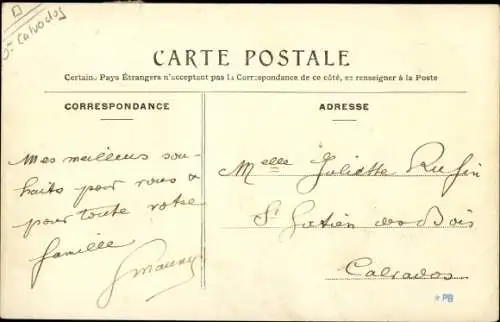 Dt Calvados
CARTE POSTALE
Certains Pays Étrangers n'acceptant pas la Correspondance de ce côté, se renseigner à la Poste
CORRESPONDANCE
Mes meilleurs sou-
haits pour vous &
pour toute votre
famille
ADRESSE
Melle Juliette Rufin
St Gatien des Bois
Calvados
PB